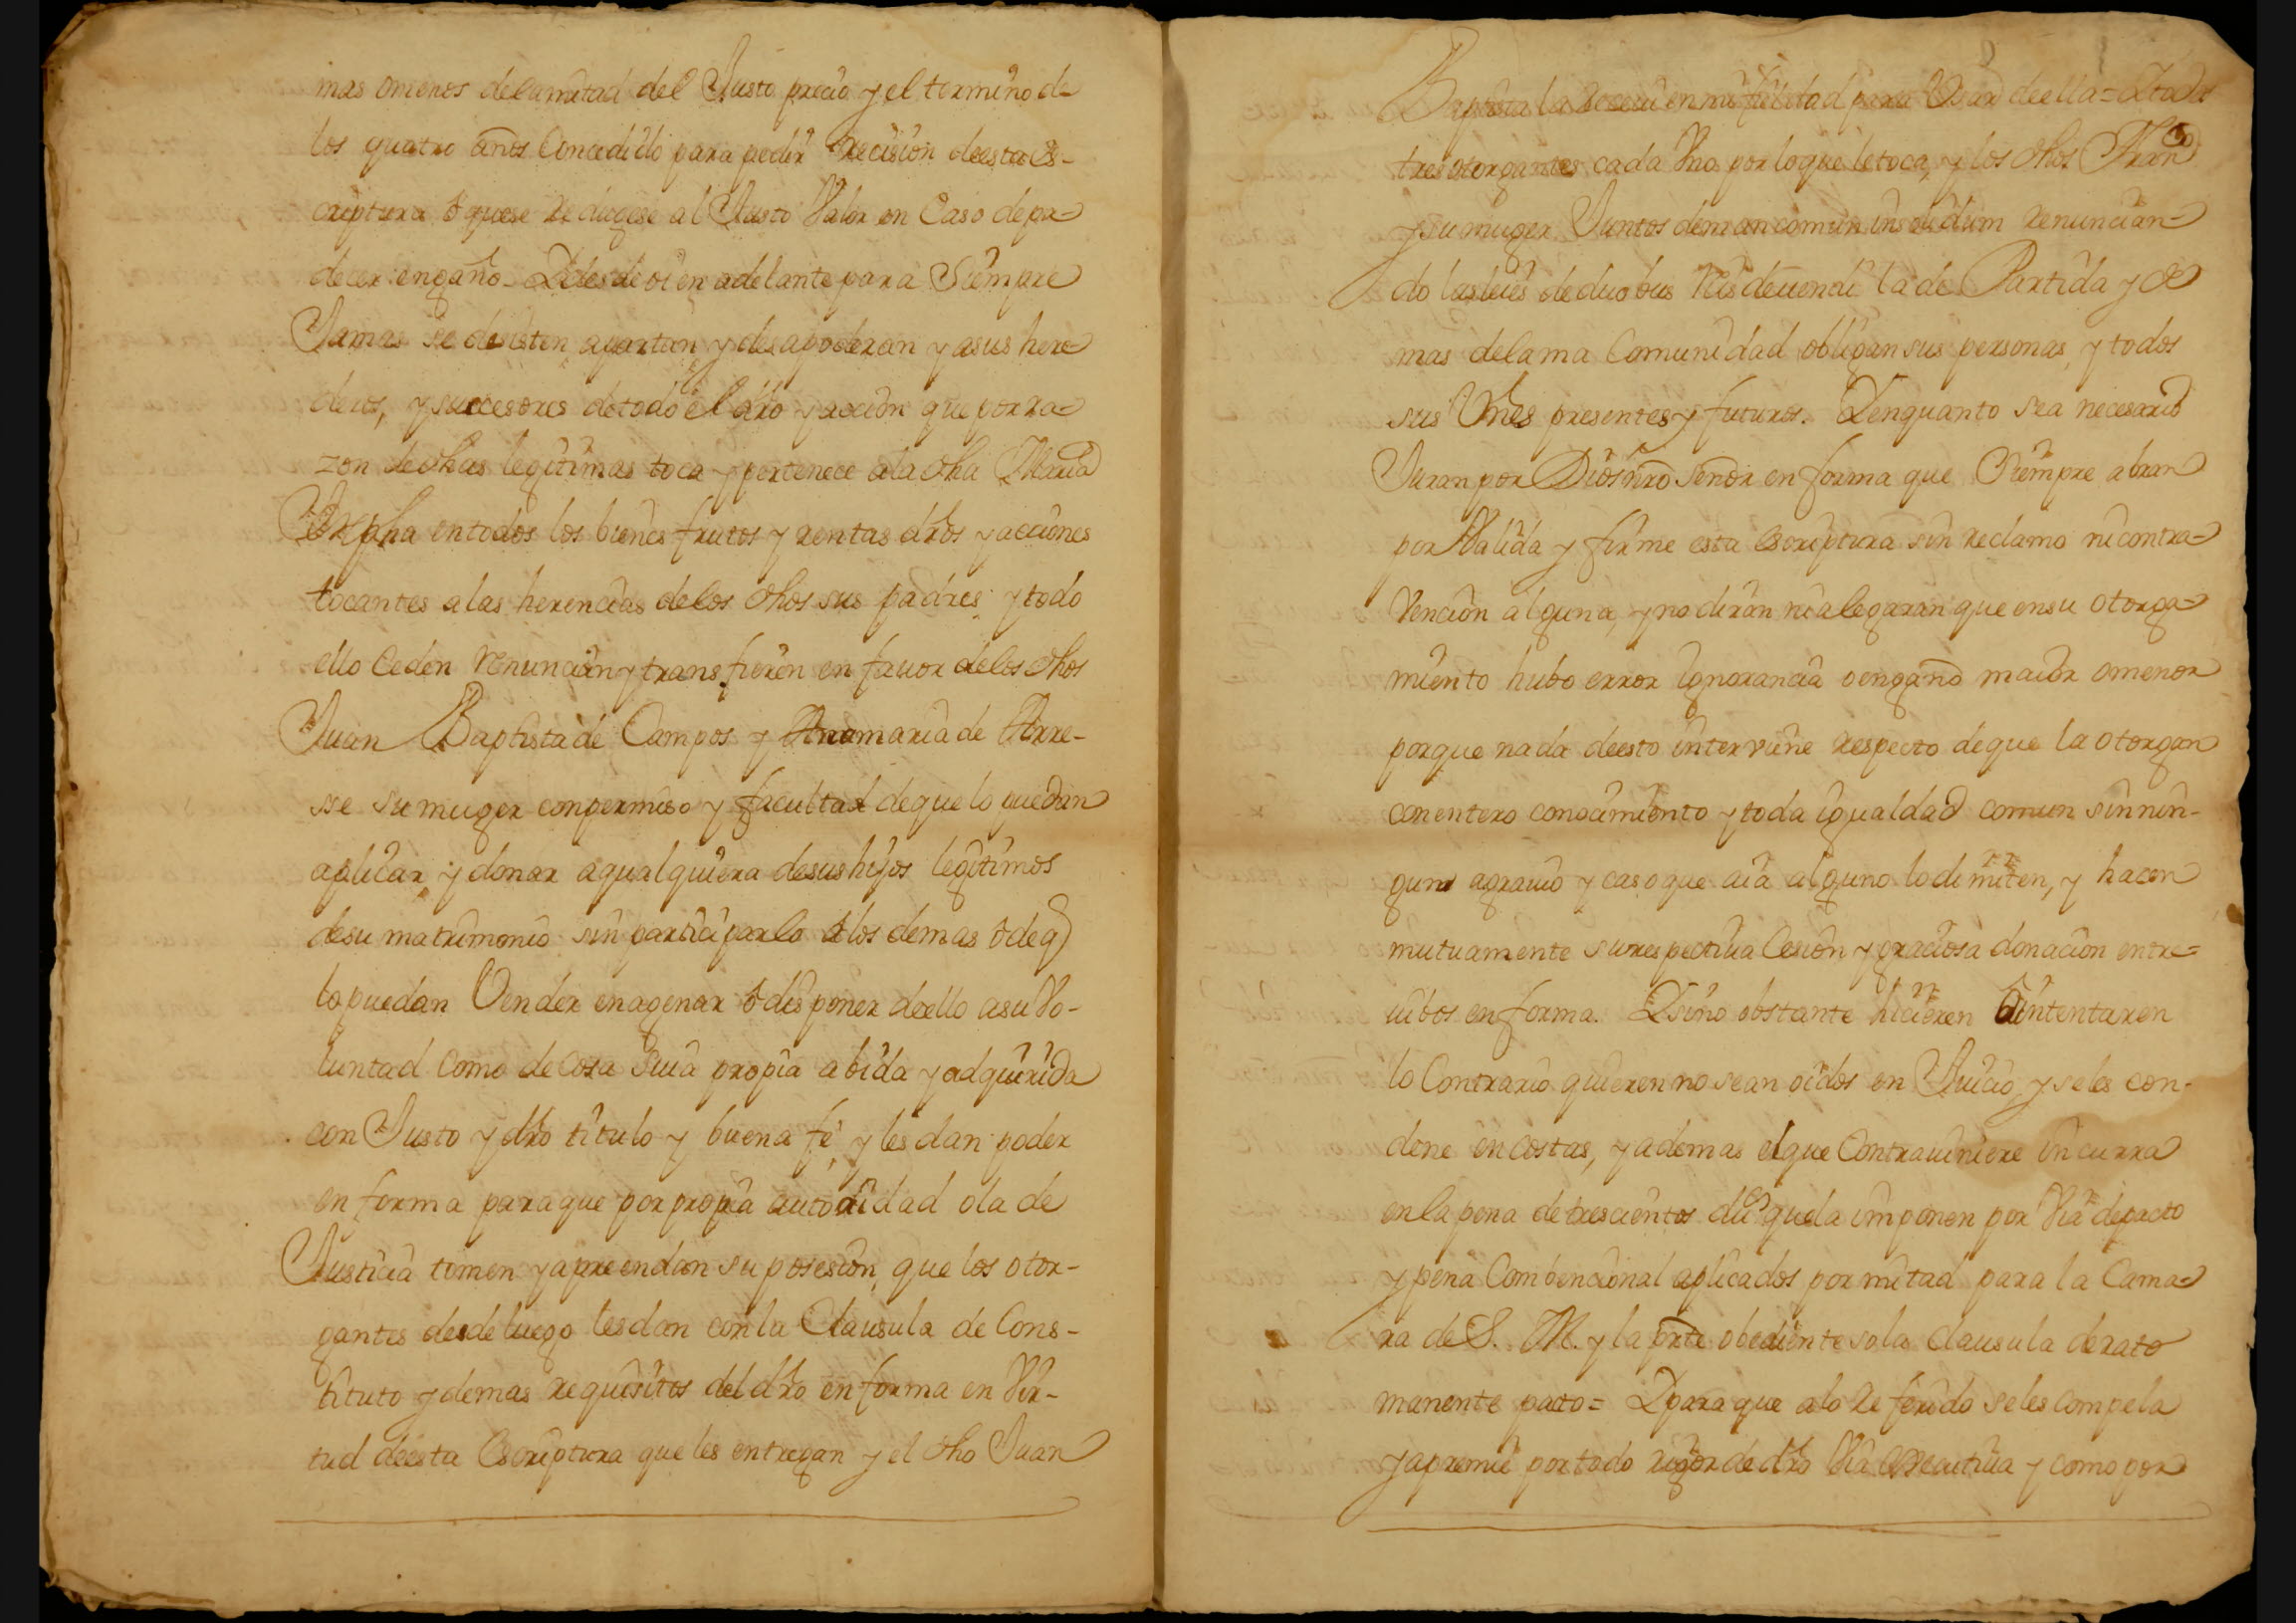 mas omenos delamitad del Justo precio y el termino de=
los quatro años Concedido para pedir Recision deesta Es-
criptura ô quese Reduzese al Justo Valor en Caso depa=
decer engaño. Y desde oi en adelante para Siempre
Jamas se desisten, apartan, y desapoderan y asus here
deros, y succesores detodo el dró y accion que por ra=
zon de dhas legitimas toca y pertenece ala dha Maria
Orpha en todos los bienes frutos y rentas drôs y acciones
tocantes alas herencias delos dhos sus padres; y todo
ello Ceden Renuncian y transfieren en favor delos dhos
Juan Baptista de Campos y Anamaria de Arre-
sse su muger conpermiso y facultad deque lo puedan
aplicar, y donar aqualquiera desus hijos legitimos
desu matrimonio sin participarlo â los demas ô deq)
lo puedan Vender enagenar ô disponer deello asu Vo-
luntad como de cosa suia propia abida y adquirida
con Justo y dró titulo y buena fé, y les dan poder
en forma paraque por propia autoridad ola de
Justicia tomen y apreendan su posesion, que los otor-
gantes desde luego les dan con la Clausula de Cons-
tituto y demas requisitos del dró en forma en Vir-
tud deesta Escriptura que les entregan y el dho Juan
Baptista la Receviô en mi para Usar deella= Y todos
tres otorgantes cada Uno por loque le toca, y los dhos Franco
y su muger Juntos demancomun insolidum renuncian=
do las leies deduobus Reis devendi la de Partida y de
mas delama Comunidad obligan sus personas, y todos
sus Vnes presentes y futuros. Y enquanto sea necesario
Juran por Dios nró señor en forma que Siempre abran
por Valida y firme esta Escriptura sin reclamo ni contra=
Vencion alguna, y no diràn ni alegaran que ensu otorga=
miento hubo error Ignorancia o engaño maior omenor
porque nada deesto interviene respecto deque la otorgan
con entero conocimiento y toda igualdad comun sin nin-
guno agravio y caso que aia alguno lo dimiten, y hacen
mutuamente su respectiva Cesion, y graciosa donacion entre=
vibos en forma. Y sino obstante hicieren ô intentaren
lo Contrario quieren no sean oidos en Juicio, y se les con-
dene en costas, y ademas el que Contraviniere incurra
en la pena de trescientos duc.s que la imponen por Via de pacto
y pena Combencional aplicados por mitad para la Cama=
ra de S. M. y la prte obediente so la Clausula de rato
manente pacto= Y para que alo Referido se les compela
y apremie por todo rigor de dró Via executiva y como por